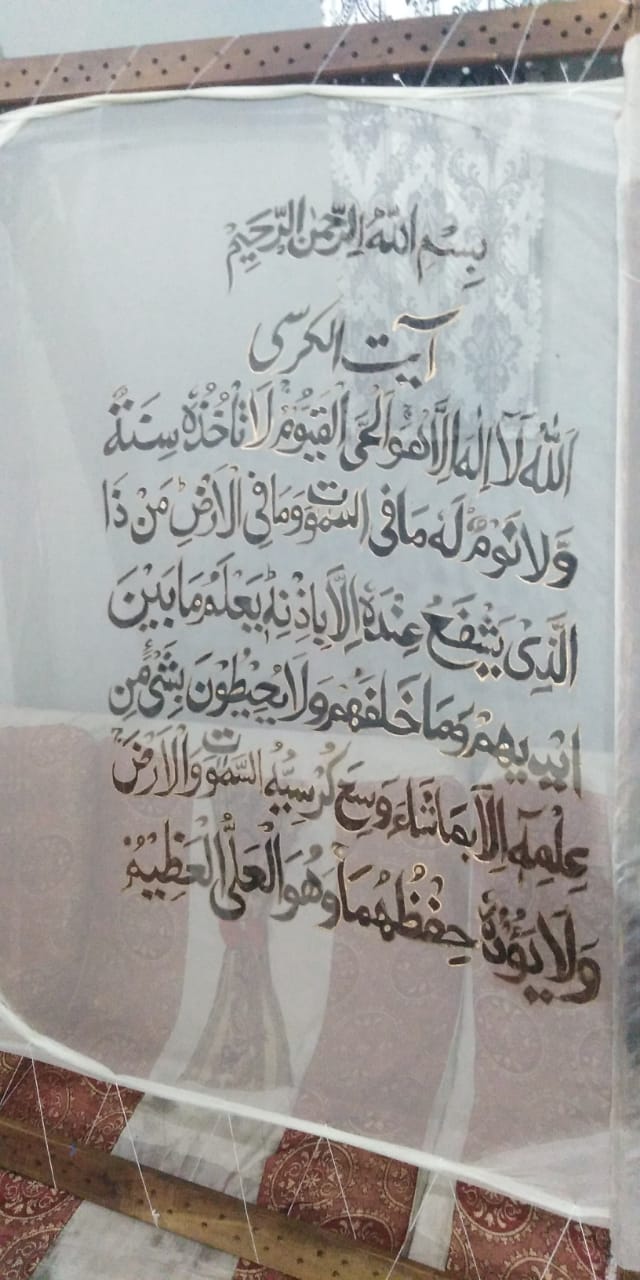 بِسْمِ اللّٰهِ الرَّحْمٰنِ الرَّحِيْمِ
آیت الکرسی
اَللّٰهُ لَآ اِلٰهَ اِلَّا هُوَ الْحَیُّ الْقَیُّوْمُ لَا تَاْخُذُهٗ سِنَةٌ
وَّلَا نَوْمٌ لَهٗ مَا فِی السَّمٰوٰتِ وَمَا فِی الْاَرْضِ مَنْ ذَا
الَّذِیْ یَشْفَعُ عِنْدَهٗ اِلَّا بِاِذْنِهٖ یَعْلَمُ مَا بَیْنَ
اَیْدِیْهِمْ وَمَا خَلْفَهُمْ وَلَا یُحِیْطُوْنَ بِشَیْءٍ مِّنْ
عِلْمِهٖٓ اِلَّا بِمَا شَآءَ وَسِعَ كُرْسِیُّهُ السَّمٰوٰتِ وَالْاَرْضَ
وَلَا یَؤُدُهٗ حِفْظُهُمَا وَهُوَ الْعَلِیُّ الْعَظِیْمُ